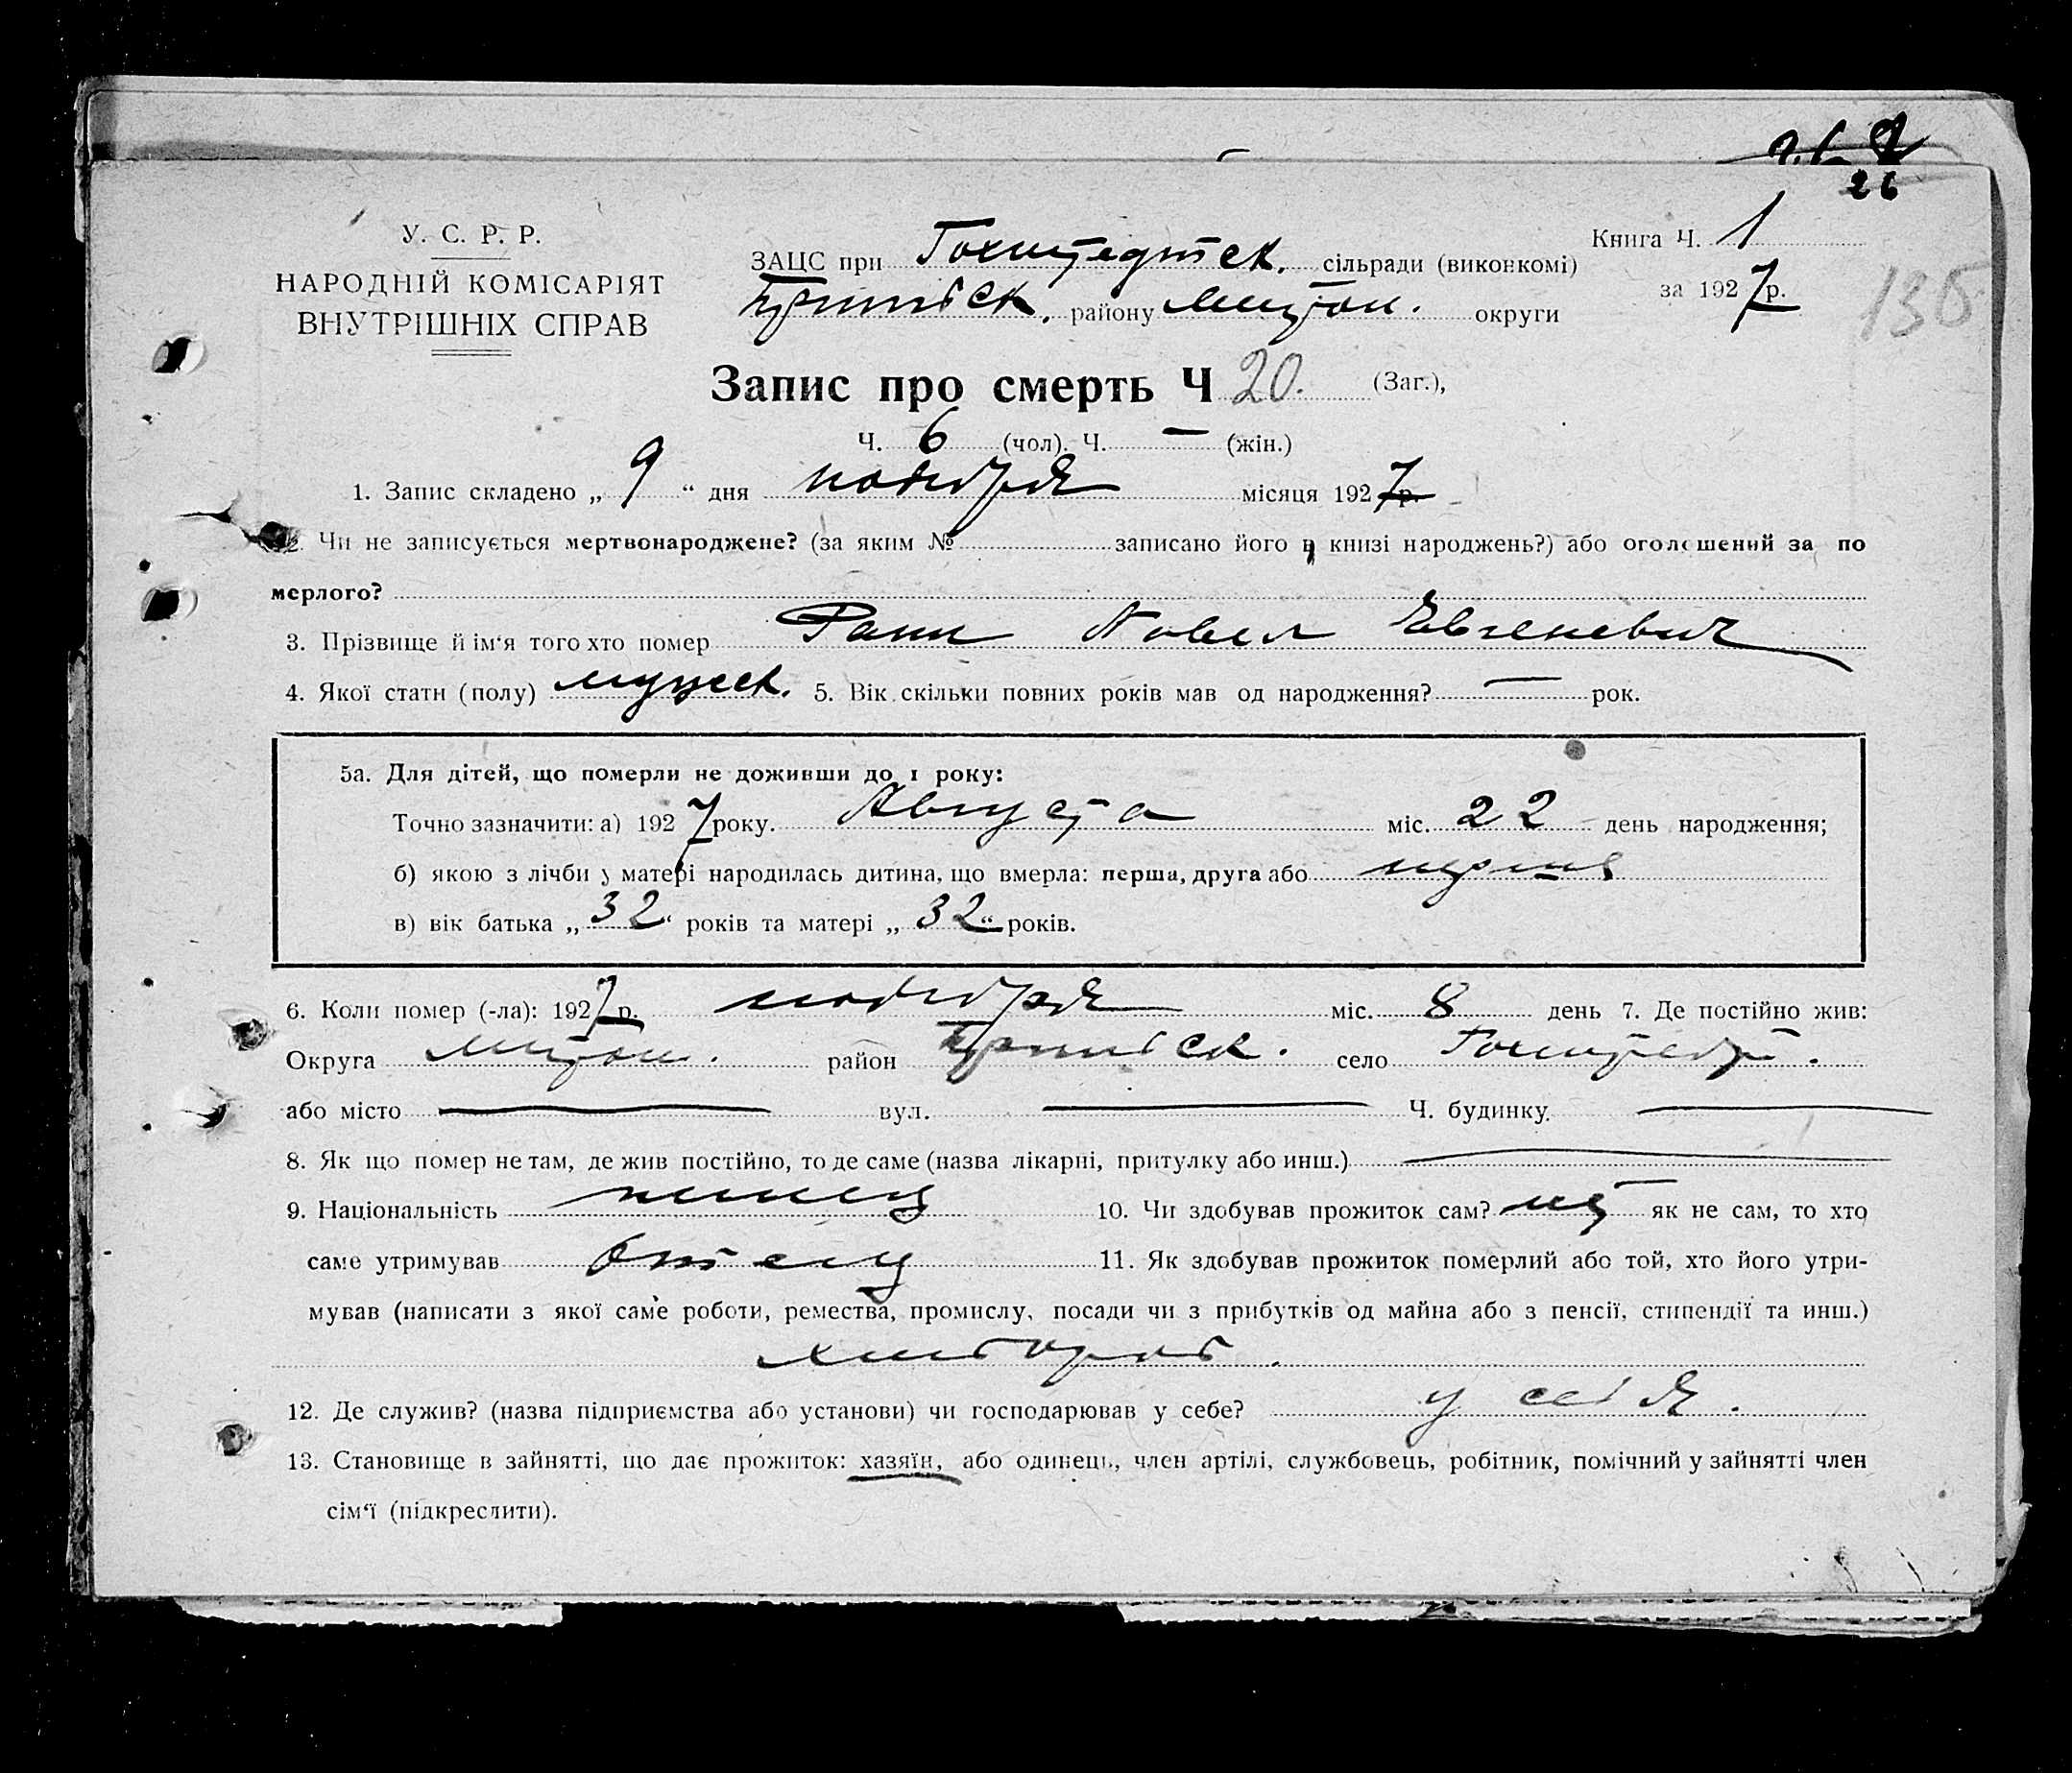 26
У. С. Р. Р.
НАРОДНІЙ КОМІСАРІЯТ
ВНУТРІШНІХ СПРАВ
ЗАЦС при Гохштедтск. сільради (виконкомі)
Пришибск. району Мелітоп. округи
Книга Ч. 1
за 1927 р.
136
Запис про смерть Ч 20. (Заг.),
Ч. 6 (чол). Ч. — (жін.)
1. Запис складено „ 9 “ дня ноября місяця 1927 р.
2. Чи не записується мертвонароджене? (за яким № записано його в книзі народжень?) або оголошений за по
мерлого?
3. Прізвище й ім‘я того хто помер Ранн Павел Евгеневич
4. Якої стати (полу) мужеск. 5. Вік скільки повних років мав од народження? — рок.
5а. Для дітей, що померли не доживши до 1 року:
Точно зазначити: а) 1927 року. Августа міс. 22 день народження;
б) якою з лічби у матері народилась дитина, що вмерла: перша, друга або
в) вік батька „ 32 “ років та матері „ 32 “ років.
6. Коли помер (-ла): 1927 р. ноября міс. 8 день 7. Де постійно жив:
Округа Мелітоп. район Пришибск. село Гохштедт.
або місто — вул. — Ч. будинку. —
8. Як що помер не там, де жив постійно, то де саме (назва лікарні, притулку або инш.) —
9. Національність немец 10. Чи здобував прожиток сам? нет як не сам, то хто
саме утримував Отец 11. Як здобував прожиток померлий або той, хто його утри-
мував (написати з якої саме роботи, ремества, промислу, посади чи з прибутків од майна або з пенсії, стипендії та инш.)
хлебороб.
12. Де служив? (назва підприємства або установи) чи господарював у себе? у себя.
13. Становище в зайнятті, що дає прожиток: хазяїн, або одинець, член артілі, службовець, робітник, помічний у зайнятті член
сім‘ї (підкреслити).